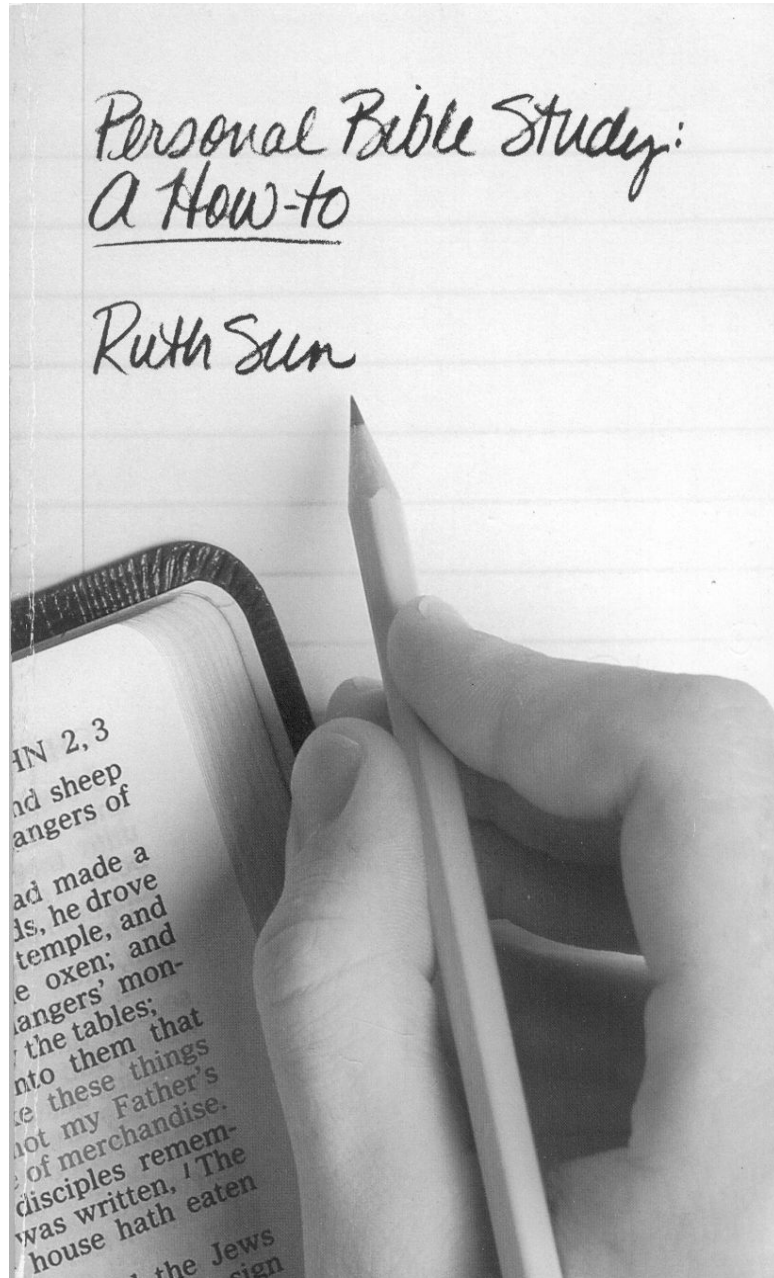 Personal Bible Study:
A How-to
Ruth Sun
HN 2, 3
nd sheep
angers of
ad made a
ds, he drove
temple, and
e oxen; and
angers' mon-
the tables;
nto them that
ke these things
not my Father's
of merchandise.
disciples remem-
was written, The
house hath eaten
the Jews
sign